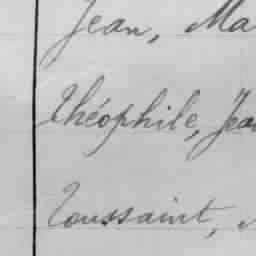 Jean, Ma
Théophile, Jea
Toussaint,